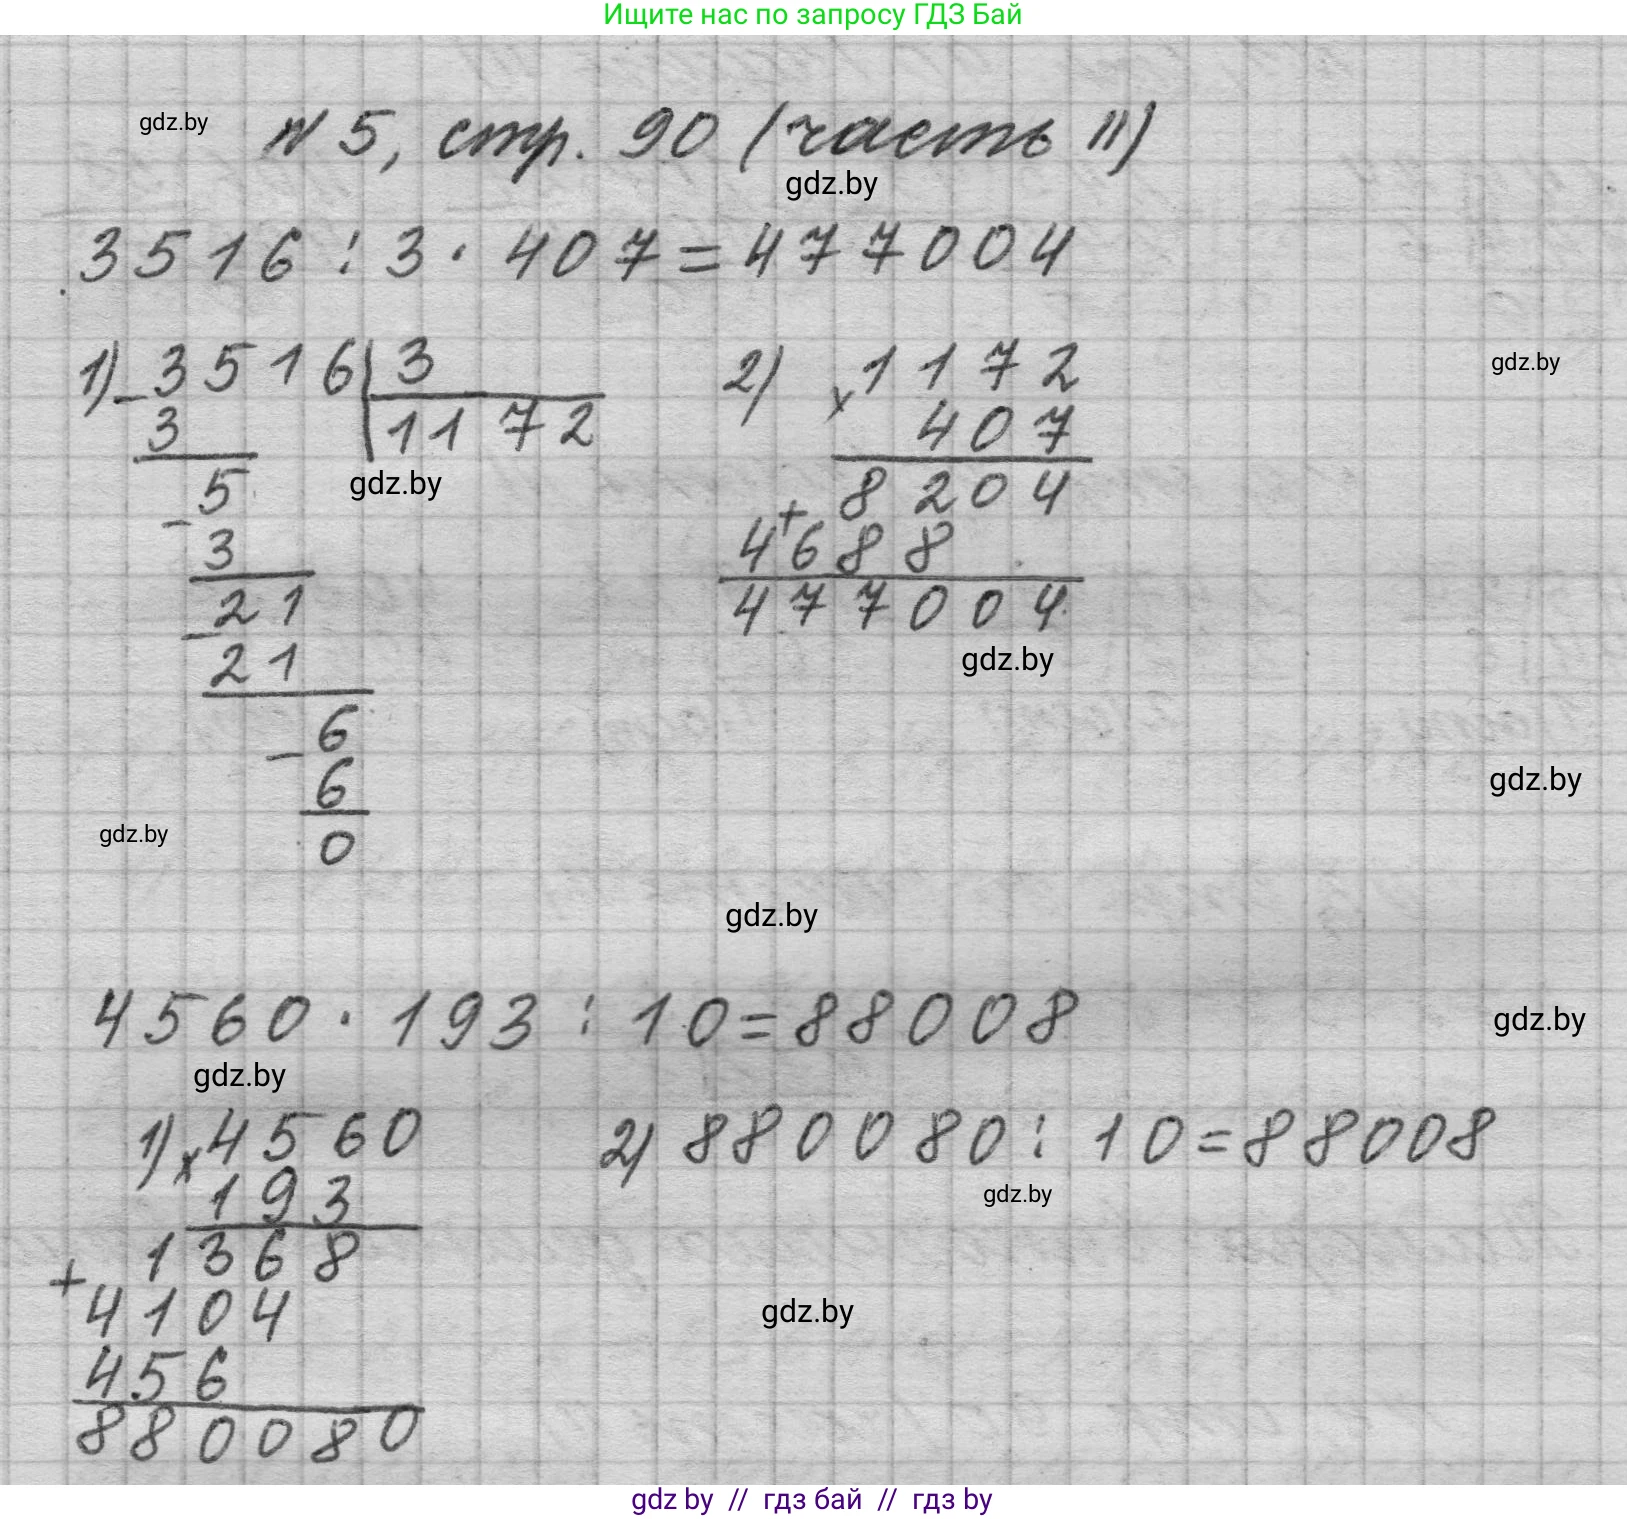 Ищите нас по запросу ГДЗ Бай
gdz.by
№ 5, стр. 90 (часть II)
gdz.by
3516 : 3 · 407 = 477004
1) - 3516 | 3
3
1172
gdz.by
- 5
3
- 21
21
- 6
6
0
2) × 1172
407
8204
+ 4688
477004
gdz.by
gdz.by
gdz.by
gdz.by
gdz.by
4560 · 193 : 10 = 88008
gdz.by
gdz.by
1) × 4560
193
1368
+ 4104
456
880080
2) 880080 : 10 = 88008
gdz.by
gdz.by
gdz by // гдз бай // гдз by